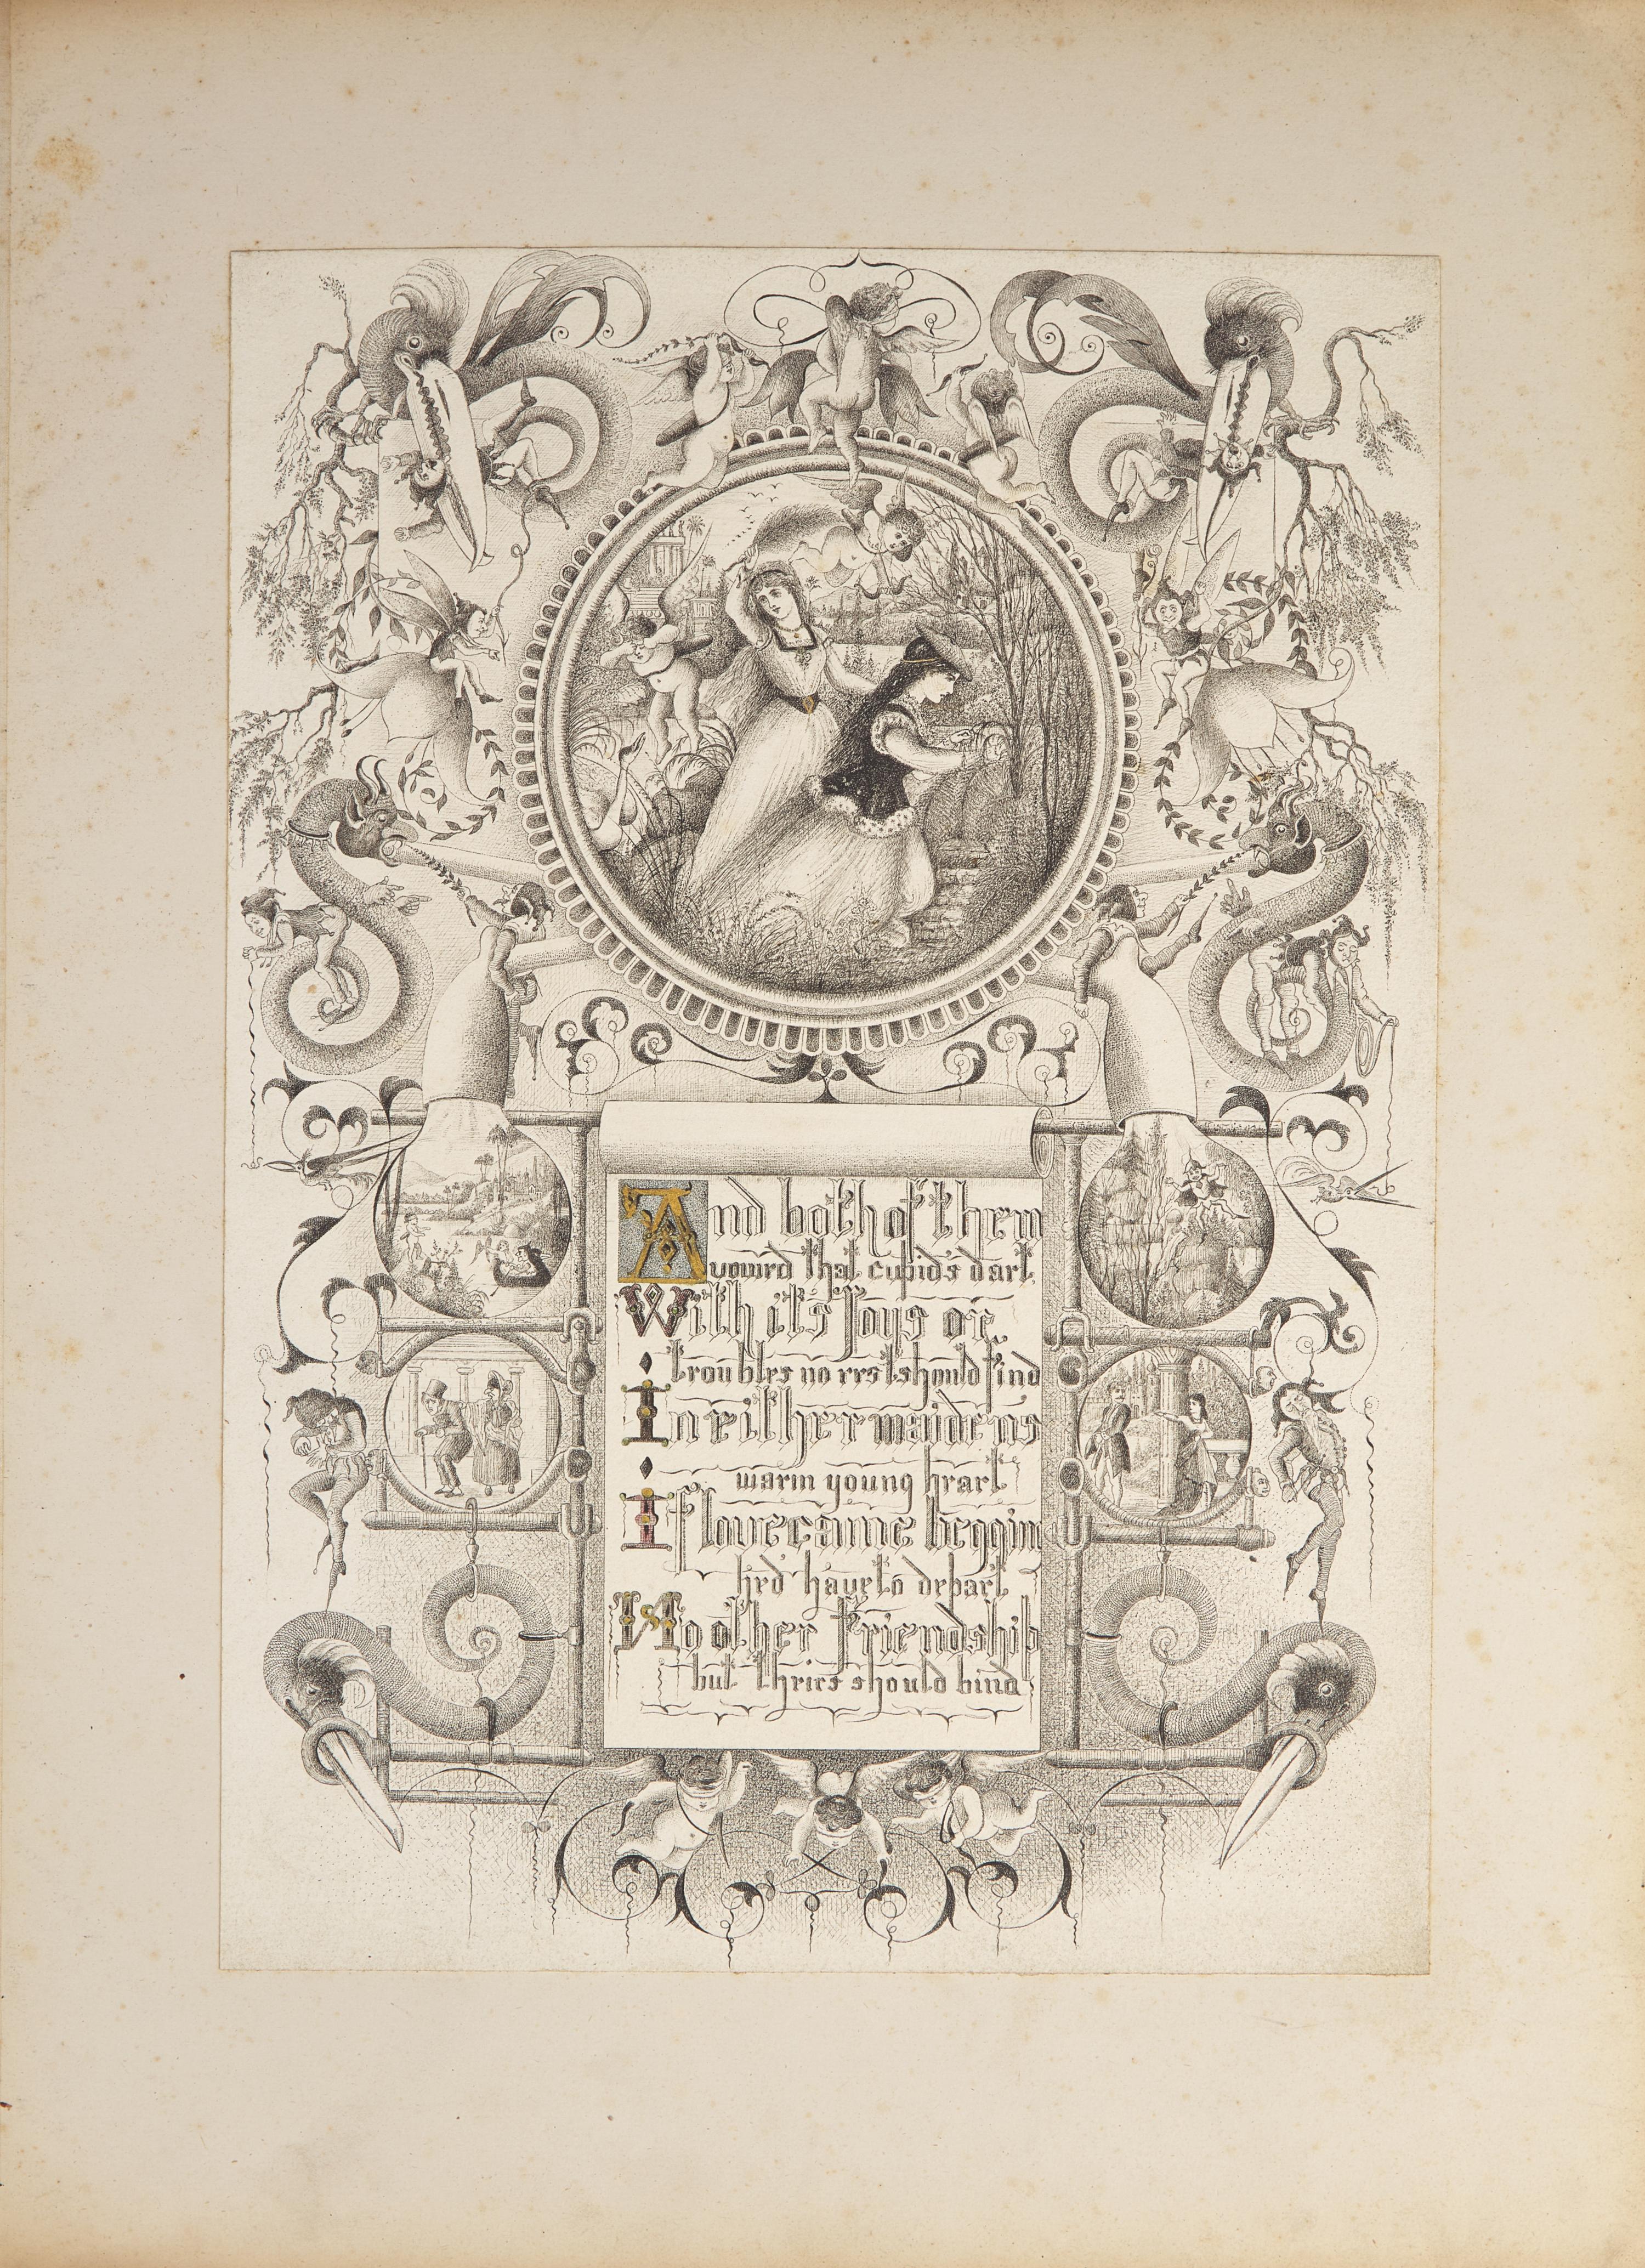 And both of them
vowed that cupid's dart
With it's Joys or
troubles no rest should find
In either maidens
warm young heart
If love came beggin
he'd have to depart
No other friendship
but theirs should bind